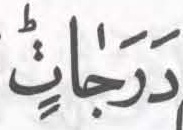 دَرَجٰاتٍؕ